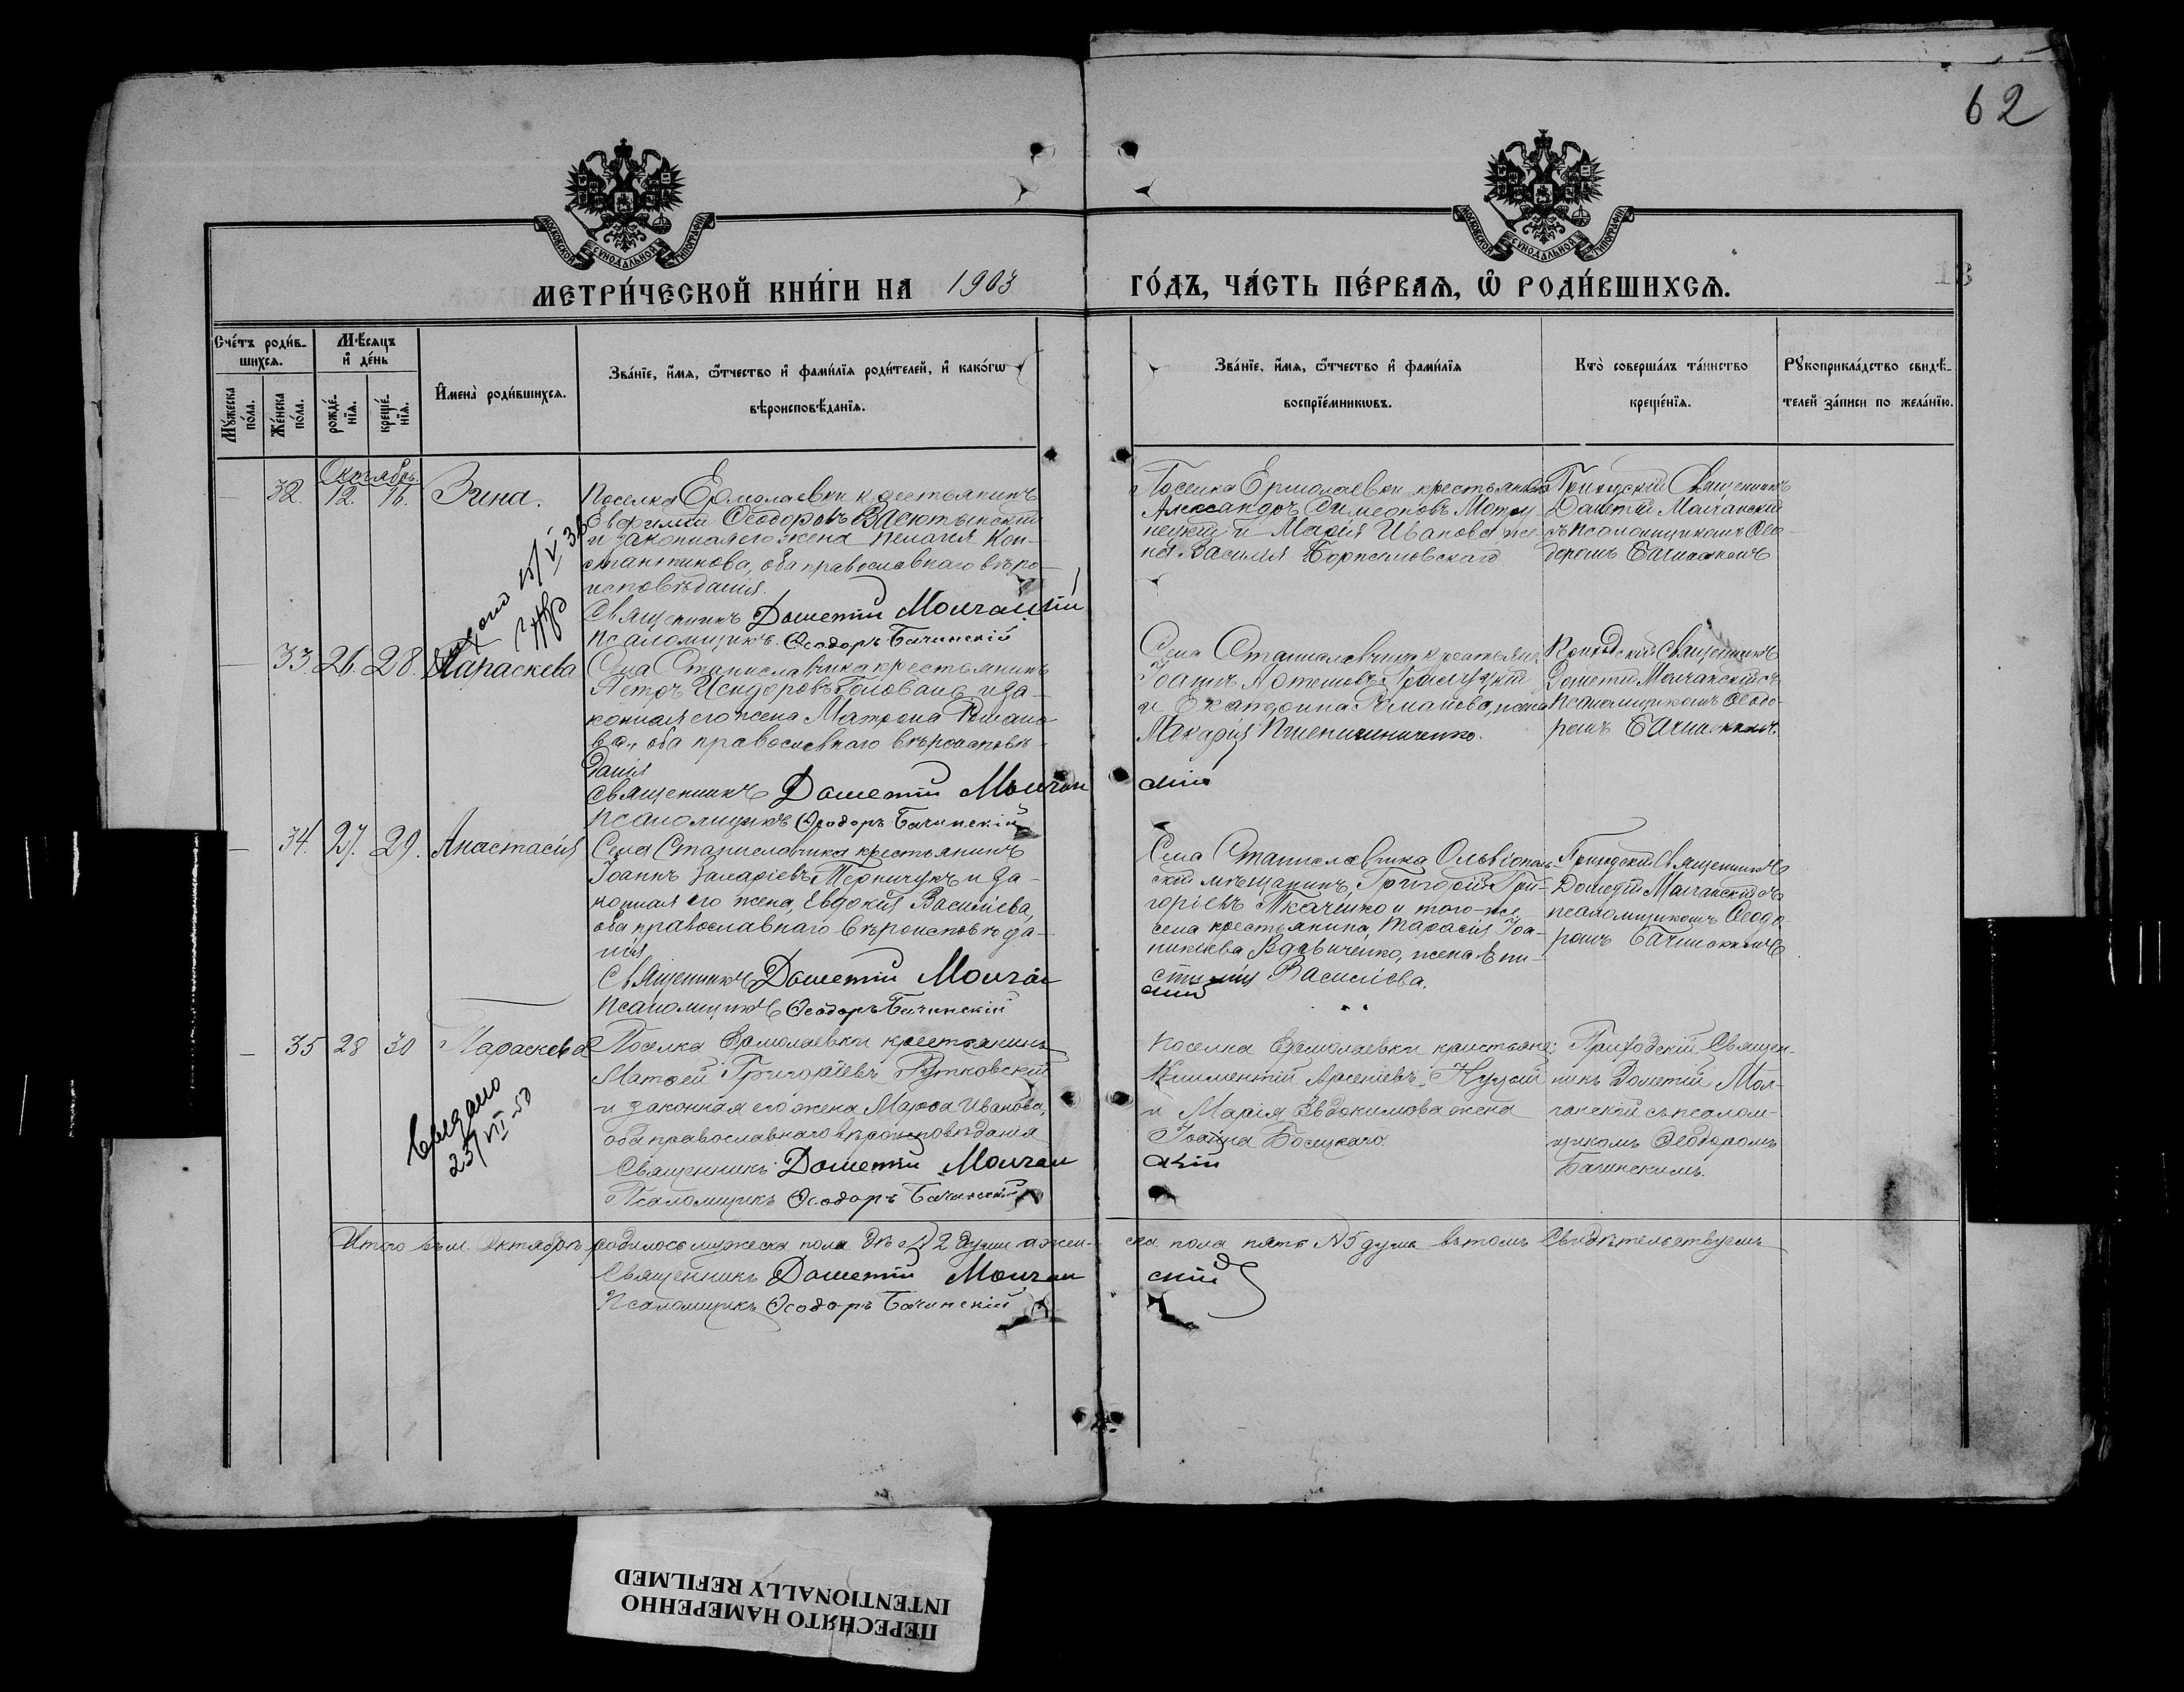 62
МОСКОВСКОЙ СѴНОДАЛЬНОЙ ТИПОГРАФІИ
МОСКОВСКОЙ СѴНОДАЛЬНОЙ ТИПОГРАФІИ
МЕТРИ́ЧЕСКОЙ КНИ́ГИ НА 1903 ГО́ДЪ, ЧА́СТЬ ПЕ́РВАѦ, Ѽ РОДИ́ВШИХСѦ.
13
Счéтъ роди́в-
шихсѧ.
Мѣ́сѧцъ
и҆ дéнь
Мꙋ́жеска
по́ла.
Жéнска
по́ла.
рождé-
нїѧ.
крещé-
нїѧ.
И҆мена̀ роди́вшихсѧ.
Зва́нїе, и҆́мѧ, ѻ҆́тчество и҆ фами́лїѧ роди́телей, и҆ како́гѡ
вѣроисповѣ́данїѧ.
Зва́нїе, и҆́мѧ, ѻ҆́тчество и҆ фами́лїѧ
воспрїе́мникѡвъ.
Кто̀ соверша́лъ та́инство
крещéнїѧ.
Рꙋкоприкла́дство свидѣ́-
телей за́писи по жела́нїю.
Октябрь.
— 32. 12. 16. Зина.
Поселка Ермолаевки крестьянинъ
Евфимій Ѳеодоровъ Васютынскій
и законная его жена Пелагія Кон-
стантинова, оба православнаго вѣро-
исповѣданія.
Священникъ Дометій Молчанскій
Псаломщикъ Ѳеодоръ Бачинскій
Поселка Ермолаевки крестьянинъ
Александръ Симеоновъ
и Марія Иванова же-
на Василія
Приходскій Священникъ
Дометій Молчанскій
съ псаломщикомъ Ѳео-
доромъ Бачинскимъ
— 33. 26. 28. Параскева
Села Станиславчика крестьянинъ
Петръ Исидоровъ Головань и за-
конная его жена Матрона Романо-
ва, оба православнаго вѣроисповѣ-
данія
Священникъ Дометій Молчан
скій
Псаломщикъ Ѳеодоръ Бачинскій
Села Станиславчика крестьян.
Іоаннъ Артемовъ
и Екатерина Романова, жена
Макарія Пшенишниченко.
Приходскій Священникъ
Дометій Молчанскій съ
псаломщикомъ Ѳеодо-
ромъ Бачинскимъ
— 34. 27. 29. Анастасія
Села Станиславчика крестьянинъ
Іоаннъ Захаріевъ Терничукъ и за-
конная его жена, Евдокія Василіева,
оба православнаго вѣроисповѣда-
нія
Священникъ Дометій Молчан
скій
Псаломщикъ Ѳеодоръ Бачинскій
Села Станиславчика Ольвіополь-
скій мѣщанинъ, Григорій Гри-
горіевъ Ткаченко и того-же
села крестьянина, Тарасія Іоа-
никіева Вдовиченко, жена
Василіева.
Приходскій Священникъ
Дометій Молчанскій съ
псаломщикомъ Ѳеодо-
ромъ Бачинскимъ
— 35 28 30 Параскева
23/VII-50
Поселка Ермолаевки крестьянинъ
Матѳей Григоріевъ Рутковскій
и законная его жена Марѳа Иванова,
оба православнаго вѣроисповѣданія
Священникъ Дометій Молчан
скій
Псаломщикъ Ѳеодоръ Бачинскій
Поселка Ермолаевки крестьяне:
Климентій Арсеніевъ Куцый
и Марія Евдокимова жена
Іоанна
Приходскій Священ-
никъ Дометій Мол-
чанскій съ псалом-
щикомъ Ѳеодоромъ
Бачинскимъ.
Итого въ м. Октябрѣ родилось мужеска пола двѣ №2 души а жен-ска пола пять №5 душъ въ томъ свидѣтельствуемъ
Священникъ Дометій Молчан
скій
Псаломщикъ Ѳеодоръ Бачинскій
ПЕРЕСНЯТО НАМЕРЕННО
INTENTIONALLY REFILMED